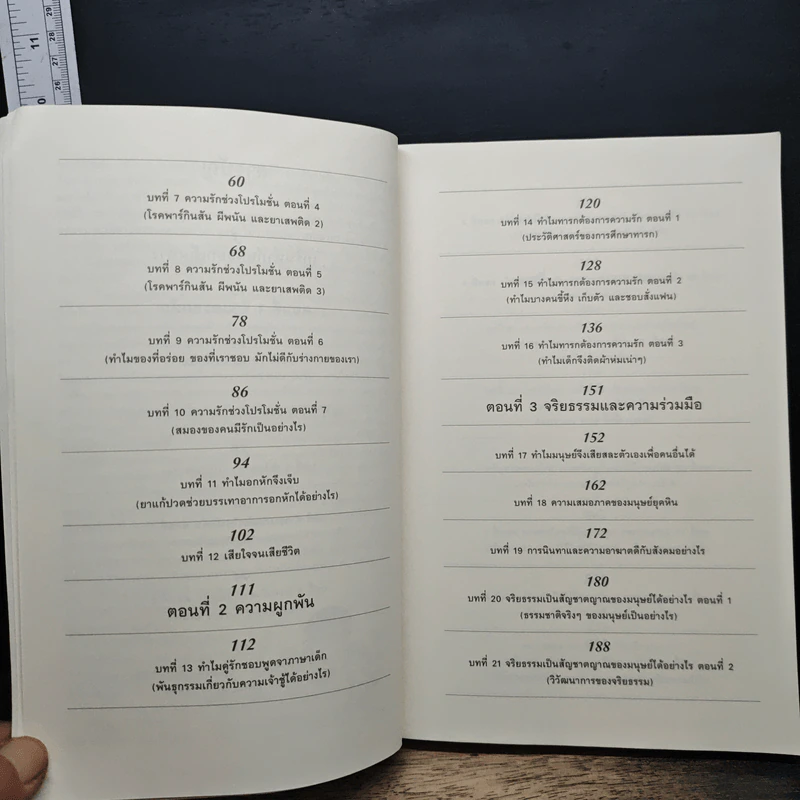 11
29
28
27
26
60
บทที่ 7 ความรักช่วงโปรโมชั่น ตอนที่ 4
(โรคพาร์กินสัน ผีพนัน และยาเสพติด 2)
68
บทที่ 8 ความรักช่วงโปรโมชั่น ตอนที่ 5
(โรคพาร์กินสัน ผีพนัน และยาเสพติด 3)
78
บทที่ 9 ความรักช่วงโปรโมชั่น ตอนที่ 6
(ทำไมของที่อร่อย ของที่เราชอบ มักไม่ดีกับร่างกายของเรา)
86
บทที่ 10 ความรักช่วงโปรโมชั่น ตอนที่ 7
(สมองของคนมีรักเป็นอย่างไร)
94
บทที่ 11 ทำไมอกหักจึงเจ็บ
(ยาแก้ปวดช่วยบรรเทาอาการอกหักได้อย่างไร)
102
บทที่ 12 เสียใจจนเสียชีวิต
111
ตอนที่ 2 ความผูกพัน
112
บทที่ 13 ทำไมคู่รักชอบพูดจาภาษาเด็ก
(พันธุกรรมเกี่ยวกับความเจ้าชู้ได้อย่างไร)
120
บทที่ 14 ทำไมทารกต้องการความรัก ตอนที่ 1
(ประวัติศาสตร์ของการศึกษาทารก)
128
บทที่ 15 ทำไมทารกต้องการความรัก ตอนที่ 2
(ทำไมบางคนขี้หึง เก็บตัว และชอบสั่งแฟน)
136
บทที่ 16 ทำไมทารกต้องการความรัก ตอนที่ 3
(ทำไมเด็กจึงติดผ้าห่มเน่าๆ)
151
ตอนที่ 3 จริยธรรมและความร่วมมือ
152
บทที่ 17 ทำไมมนุษย์จึงเสียสละตัวเองเพื่อคนอื่นได้
162
บทที่ 18 ความเสมอภาคของมนุษย์ยุคหิน
172
บทที่ 19 การนินทาและความอาฆาตดีกับสังคมอย่างไร
180
บทที่ 20 จริยธรรมเป็นสัญชาตญาณของมนุษย์ได้อย่างไร ตอนที่ 1
(ธรรมชาติจริงๆ ของมนุษย์เป็นอย่างไร)
188
บทที่ 21 จริยธรรมเป็นสัญชาตญาณของมนุษย์ได้อย่างไร ตอนที่ 2
(วิวัฒนาการของจริยธรรม)